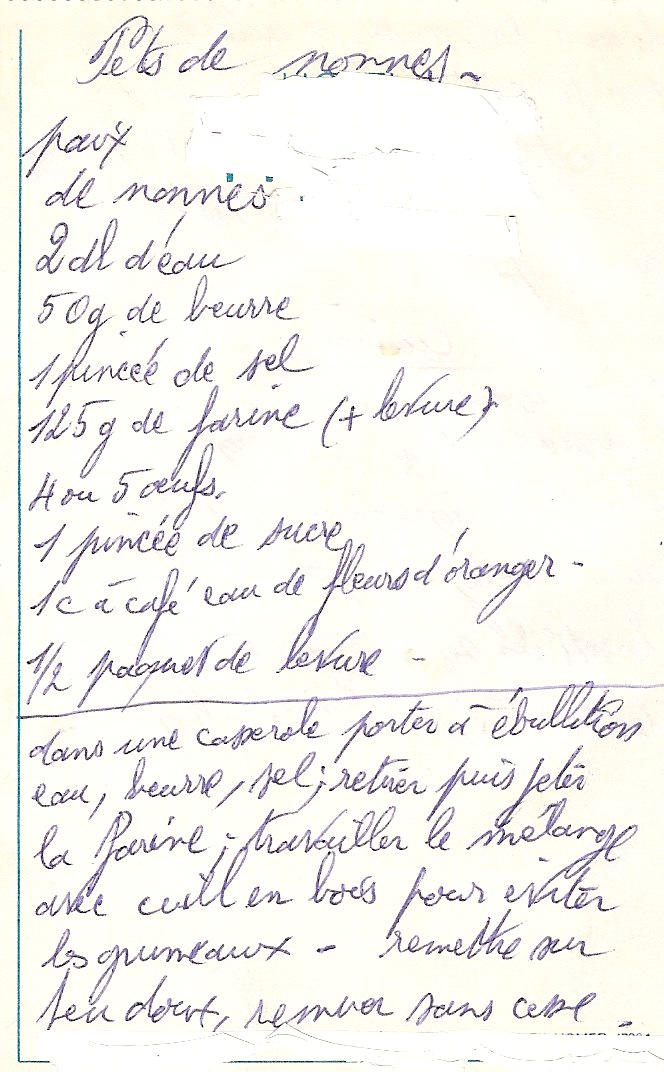 Pets de nonnes -
paix
de nonnes
2 dl d'eau
50g de beurre
1 pincée de sel
125g de farine (+ levure)
4 ou 5 œufs.
1 pincée de sucre
1c à café eau de fleurs d'oranger -
1/2 paquet de levure -
dans une casserole porter à ébullition
eau, beurre, sel; retirer puis jeter
la farine; travailler le mélange
avec cuill en bois pour éviter
les grumeaux - remettre sur
feu doux, remuer sans cesse -